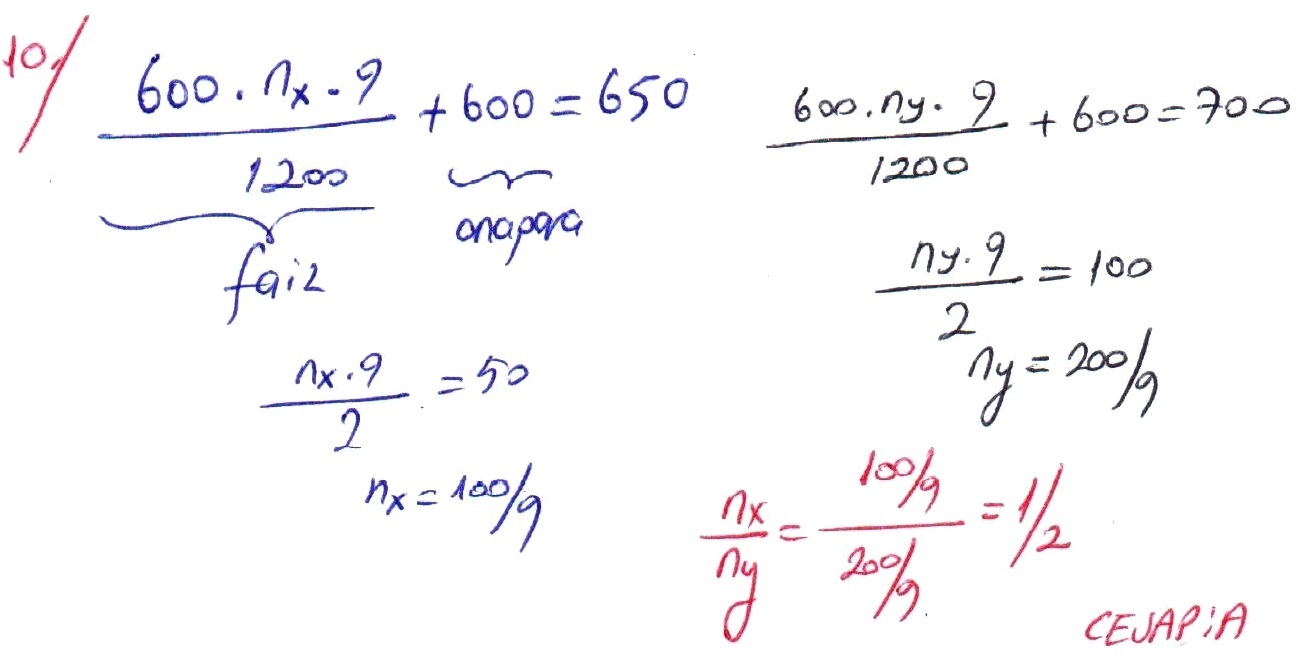 10)
600 . nx . 9 / 1200 + 600 = 650
faiz
anapara
nx . 9 / 2 = 50
nx = 100/9
600 . ny . 9 / 1200 + 600 = 700
ny . 9 / 2 = 100
ny = 200/9
nx / ny = 100/9 / 200/9 = 1/2
CEVAP: A